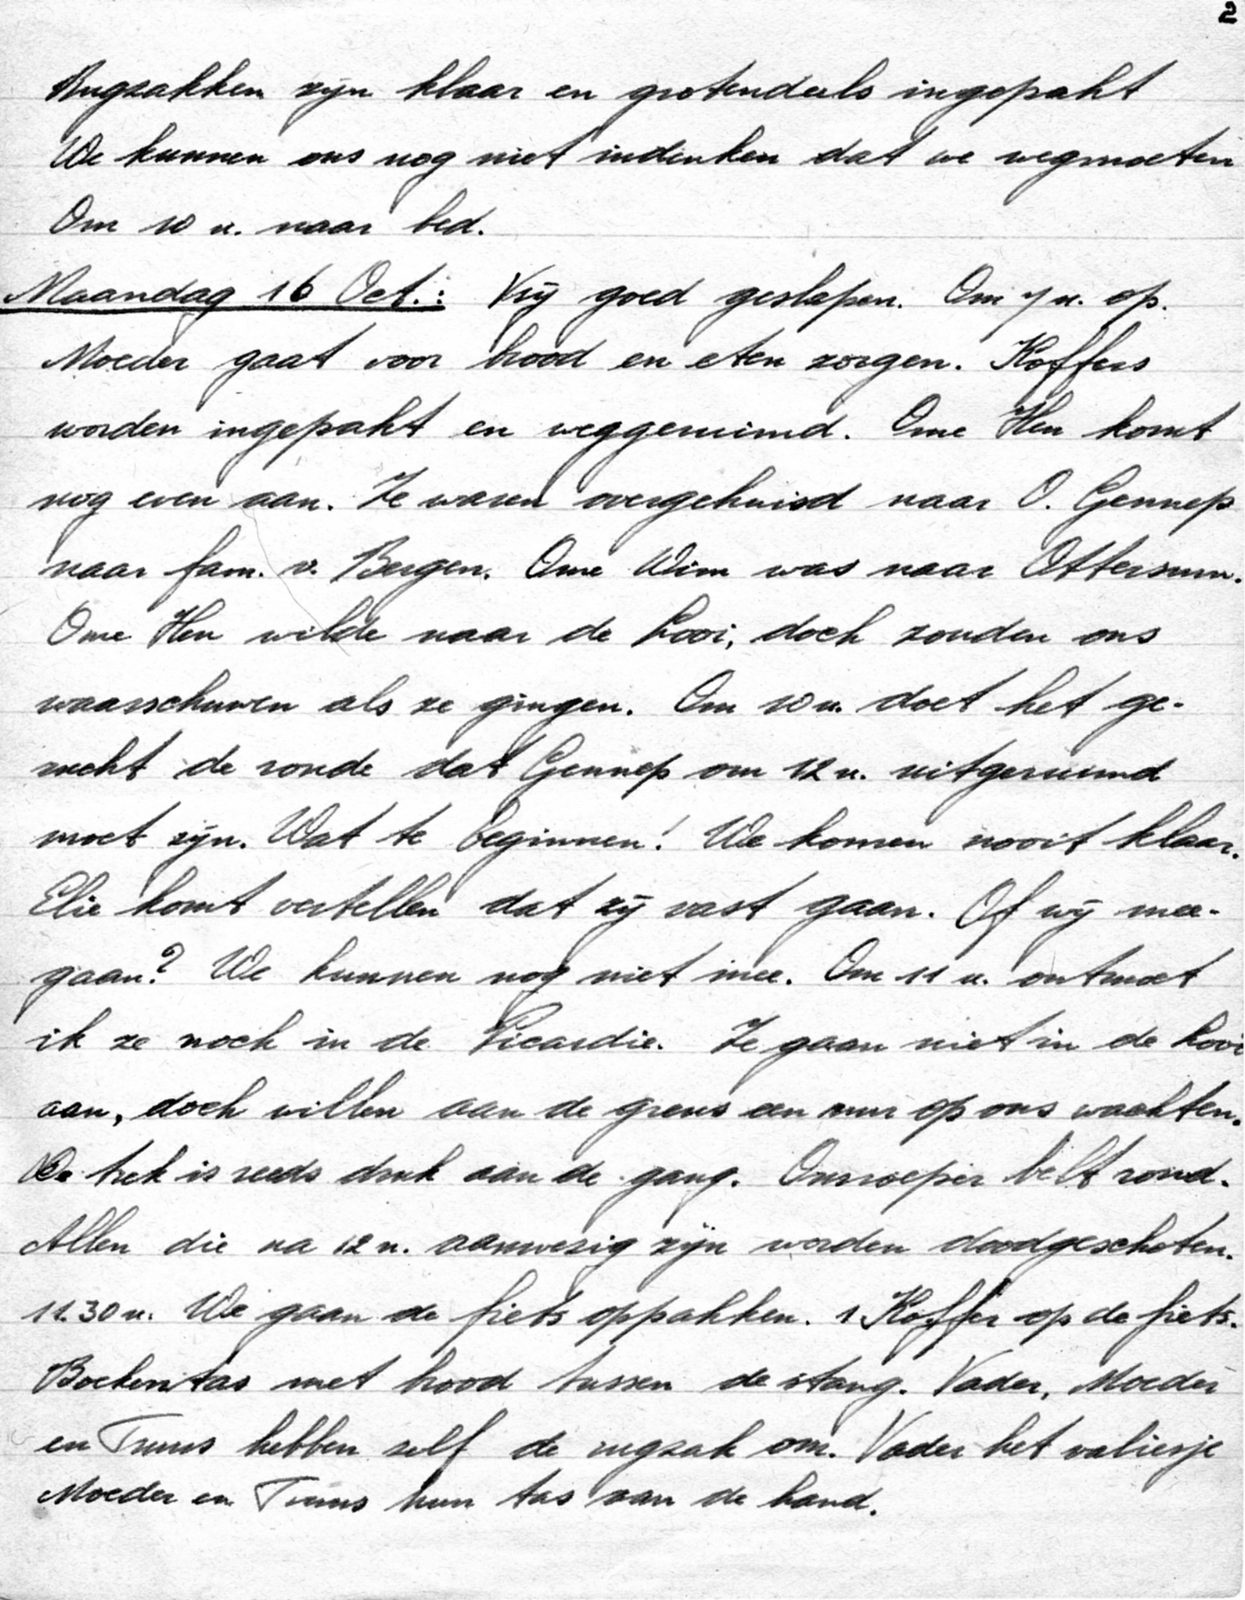 2
Rugzakken zijn klaar en grotendeels ingepakt
We kunnen ons nog niet indenken dat we wegmoeten
Om 10 u. naar bed.
Maandag 16 Oct.: Vrij goed geslapen. Om 7 u. op.
Moeder gaat voor brood en eten zorgen. Koffers
worden ingepakt en weggeruimd. Ome Hen komt
nog even aan. Ze waren overgehuisd naar O. Gennep
naar fam. v. Bergen. Ome Wim was naar Ottersum.
Ome Hen wilde naar de Looi, doch zouden ons
waarschuwen als ze gingen. Om 10 u. doet het ge-
rucht de ronde dat Gennep om 12 u. uitgeruimd
moet zijn. Wat te beginnen! We komen nooit klaar.
Elie komt vertellen dat zij vast gaan. Of wij mee-
gaan? We kunnen nog niet mee. Om 11 u. ontmoet
ik ze noch in de Picardie. Ze gaan niet in de Looi
aan, doch willen aan de grens een uur op ons wachten.
De trek is reeds druk aan de gang. Omroeper belt rond.
Allen die na 12 u. aanwezig zijn worden doodgeschoten.
11.30 u. We gaan de fiets oppakken. 1 Koffer op de fiets.
Boekentas met brood tussen de stang. Vader, Moeder
en Truus hebben zelf de rugzak om. Vader het valiesje
Moeder en Truus hun tas aan de hand.